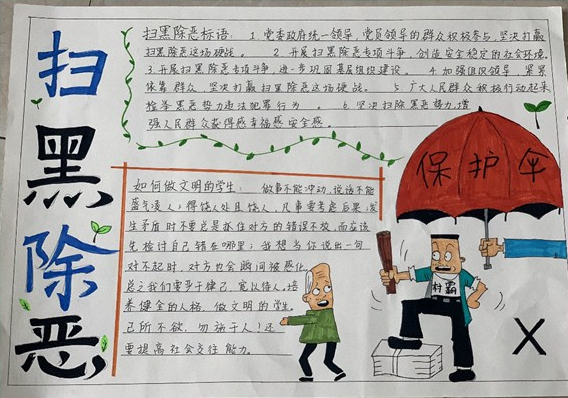 扫黑除恶
扫黑除恶标语： 1.党委政府统一领导，党员领导的群众积极参与，坚决打赢
扫黑除恶这场硬战。 2.开展扫黑除恶专项斗争，创造安全稳定的社会环境。
3.开展扫黑除恶专项斗争，进一步巩固基层组织建设。 4.加强组织领导，紧紧
依靠群众，坚决打赢扫黑除恶这场硬战。 5.广大人民群众积极行动起来
检举黑恶势力违法犯罪行为。 6.坚决扫除黑恶势力，增
强人民群众获得感幸福感安全感。
如何做文明的学生： 做事不能冲动，说话不能
盛气凌人；得饶人处且饶人，凡事要考虑后果；发
生矛盾时不要总是抓住对方的错误不放，而应该
先检讨自己错在哪里；我想当你说出一句
对不起时，对方也会瞬间被感化。
总之我们要严于律己，宽以待人，培
养健全的人格，做文明的学生。
己所不欲，勿施于人！还
要提高社会交往能力。
保护伞
村霸
X